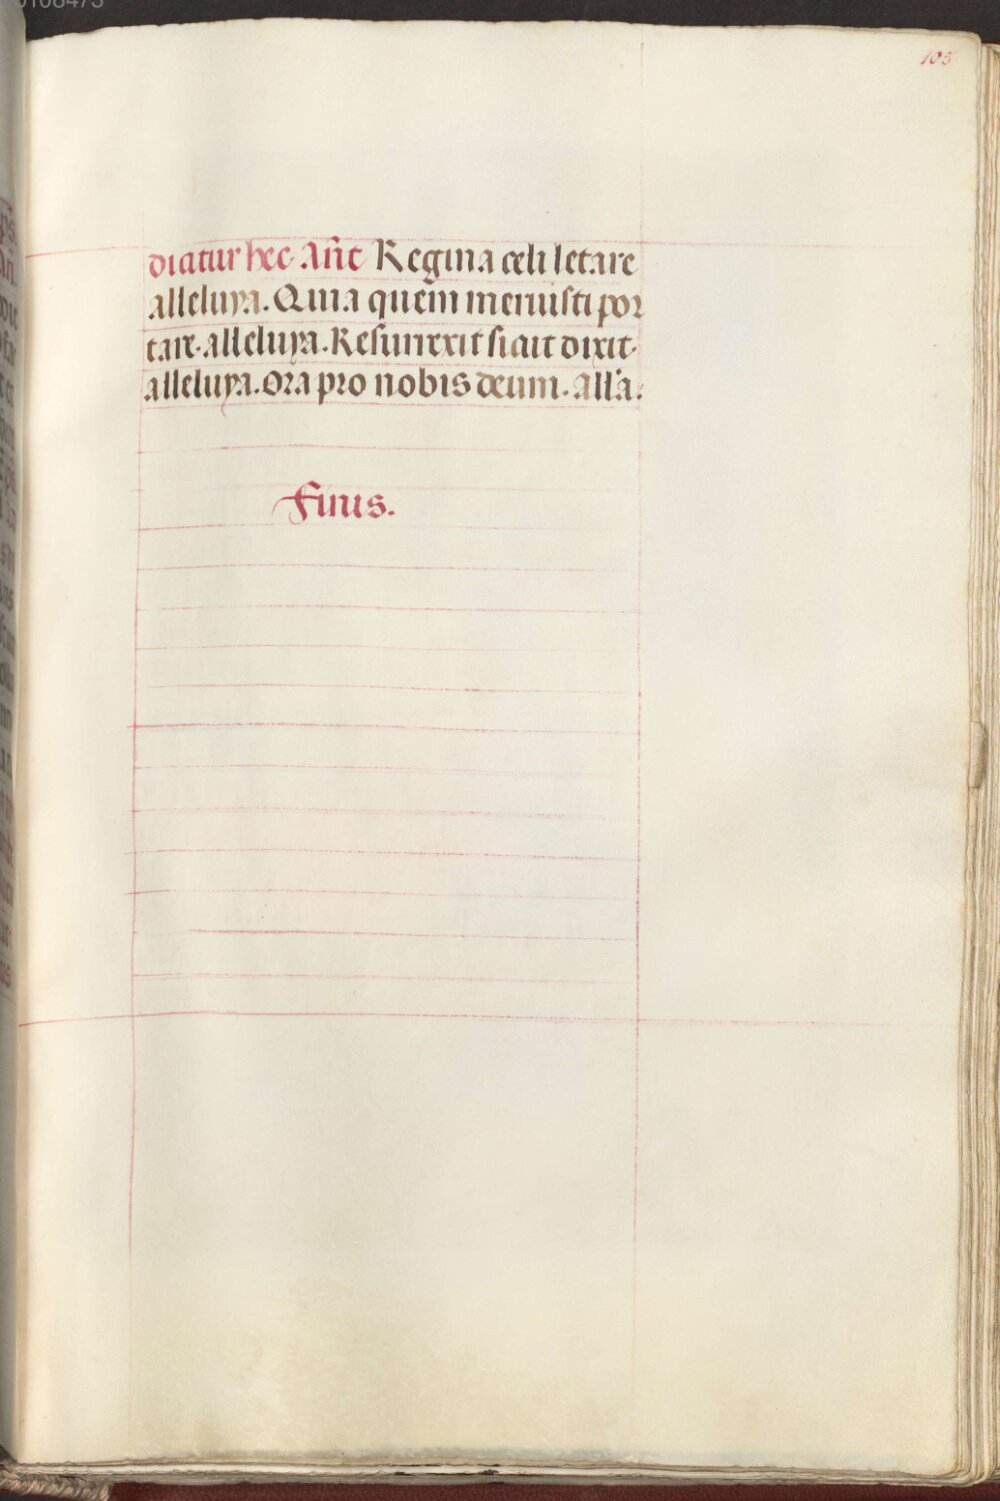 105
dicatur hec. Añt Regina celi letare
alleluya. Quia quem meruisti por
tare. alleluya. Resurrexit sicut dixit.
alleluya. Ora pro nobis deum. all'a.
Finis.